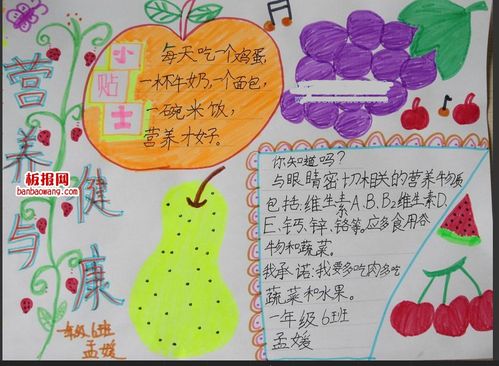 营养与健康
小贴士
每天吃一个鸡蛋,
一杯牛奶,一个面包,
一碗米饭,
营养才好。
板报网
banbaowang.com
一年级6班
孟媛
你知道吗?
与眼睛密切相关的营养物质
包括:维生素A、B、B2维生素D、
E、钙、锌、铬等。应多食用谷
物和蔬菜。
我承诺:我要多吃肉多吃
蔬菜和水果。
一年级6班
孟媛